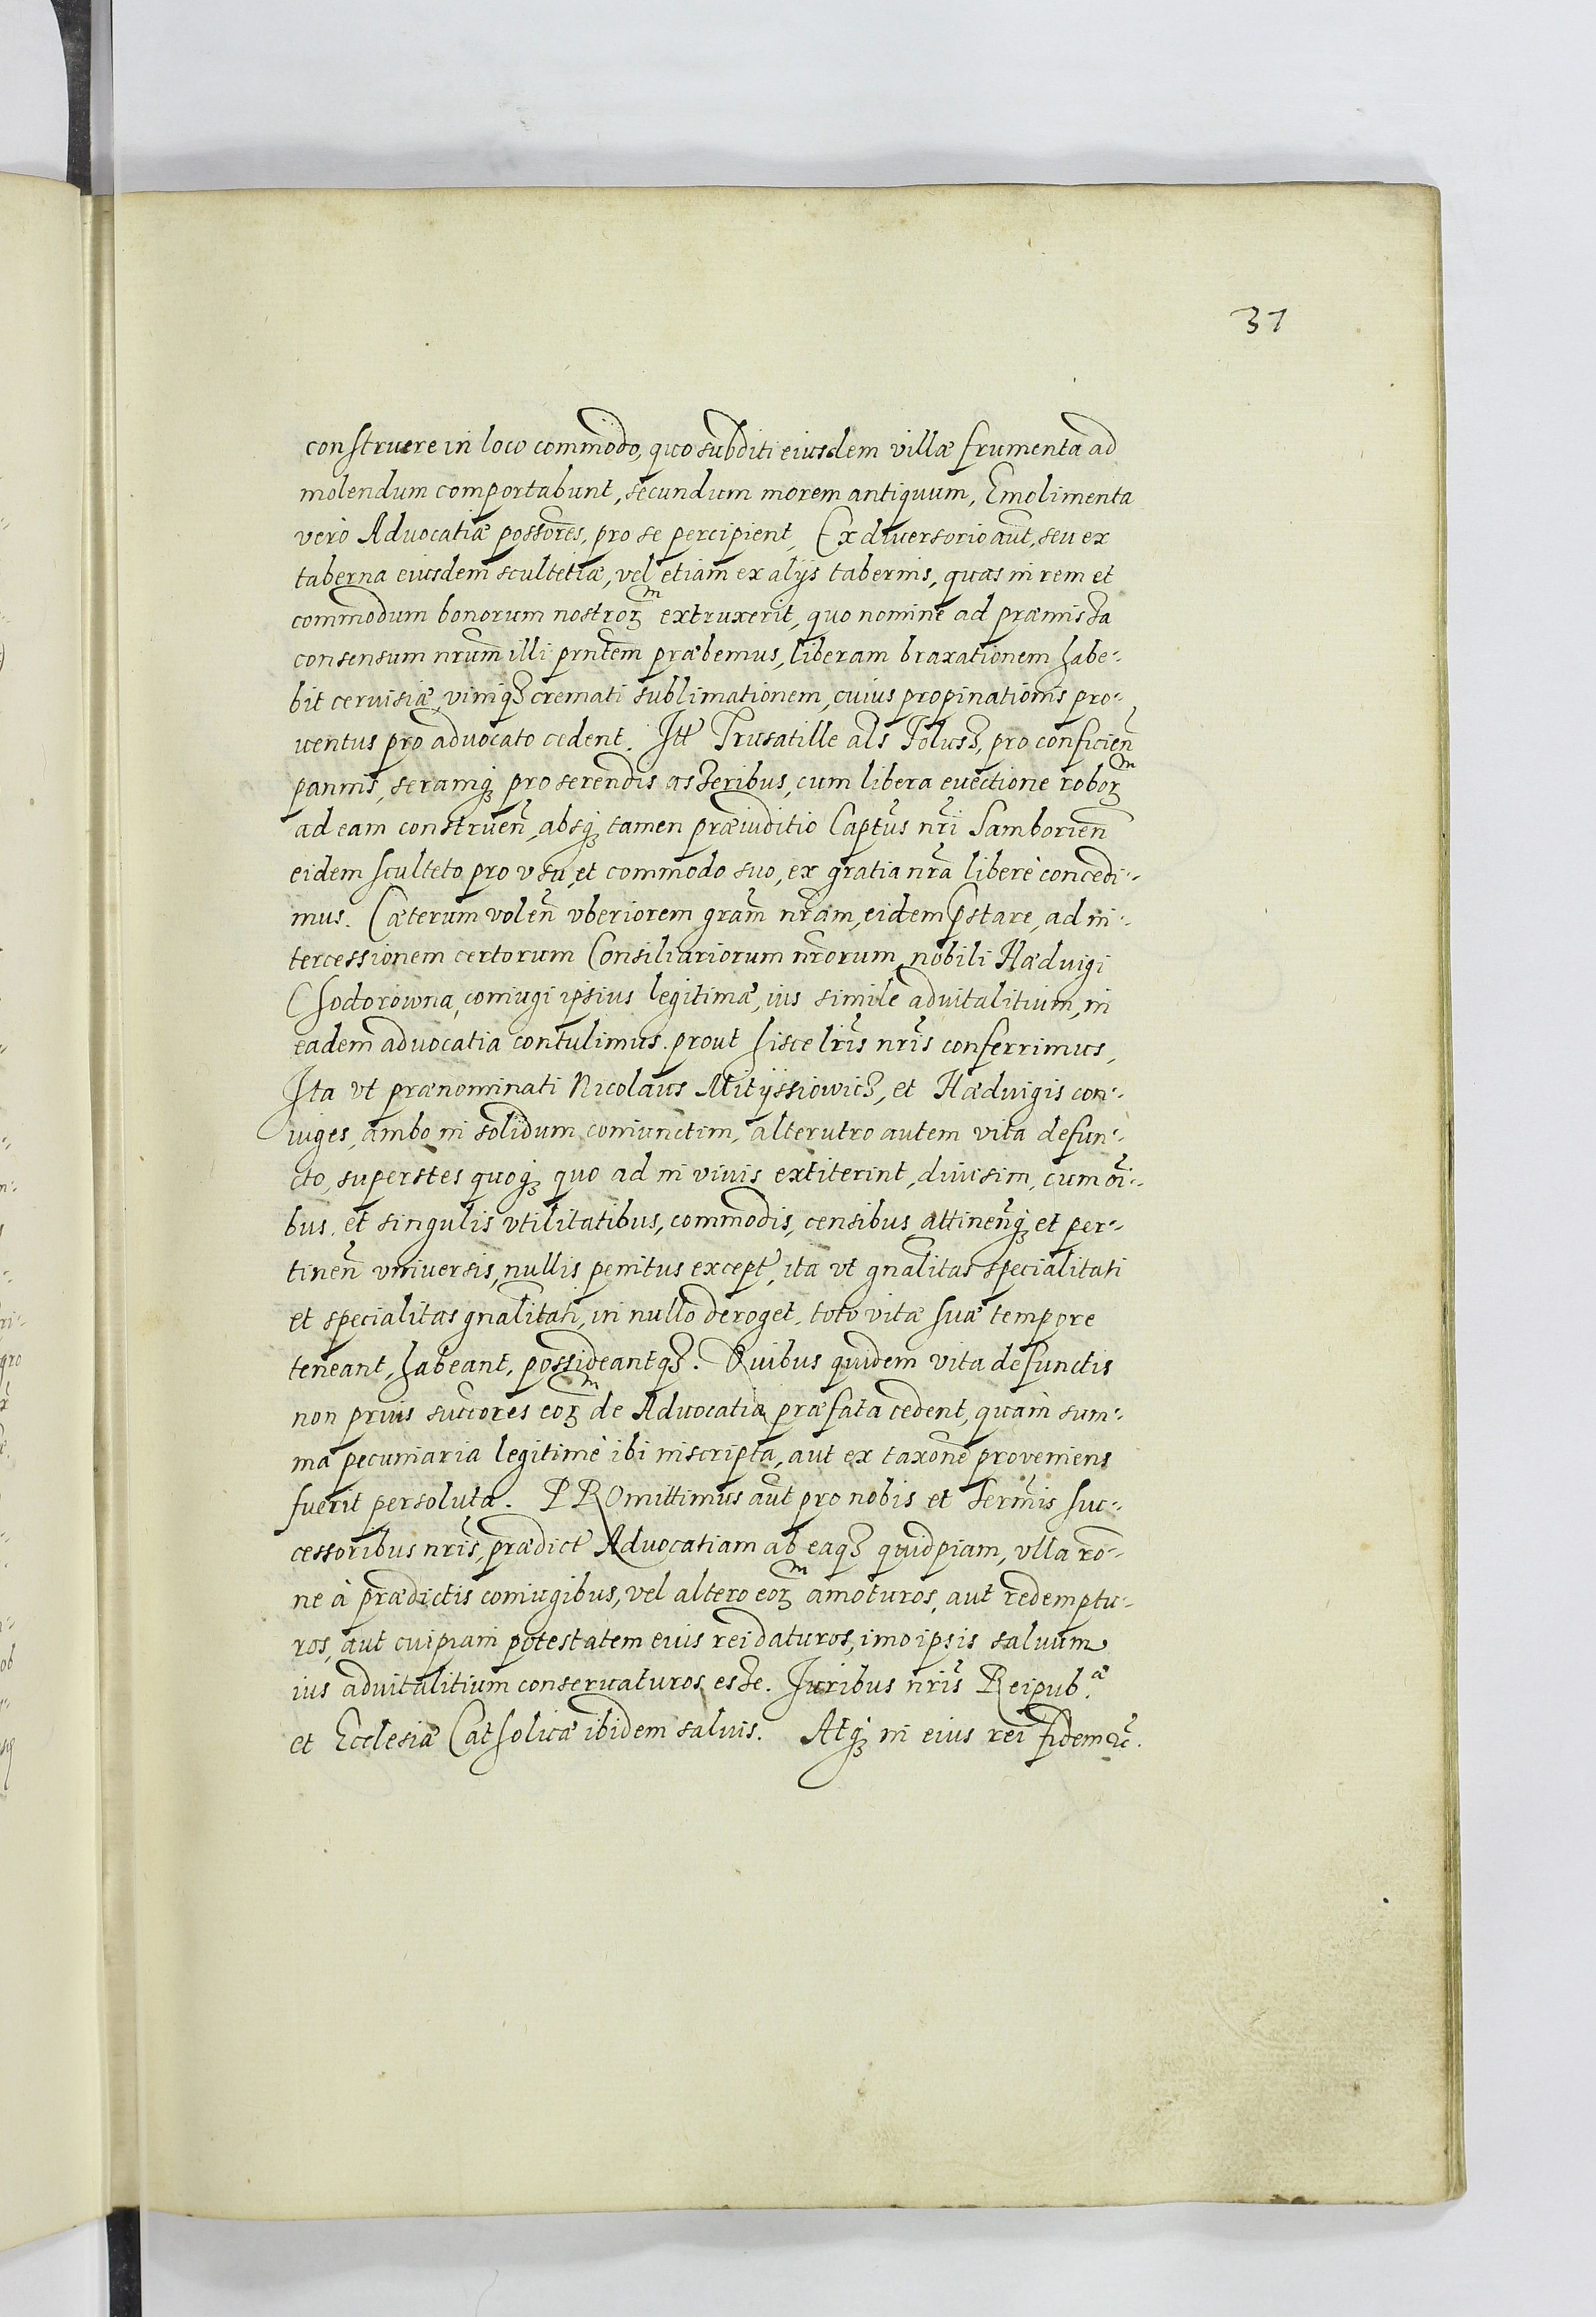 31
construere in loco commodo, quo subditi eiusdem villæ frumenta ad
molendum comportabunt, secundum morem antiquum, Emolimenta
verò Advocatiæ possores, pro se percipient, Ex diversorio aut, seu ex
taberna eiusdem scultetiæ, vel etiam ex alijs tabernis, quas in rem et
commodum bonorum nostroꝝ extruxerit, quo nomine ad præmissa
consensum nrum illi prntem præbemus, liberam braxationem habe-
bit cervisiæ, viniqȝ cremati sublimationem, cuius propinationis pro-
uentus pro advocato cedent. Itt Trusatille als Folusz, pro conficien
pannis, seramqȝ pro serendis asseribus, cum libera euectione roboꝝ
ad eam construen, absqȝ tamen præiuditio Captus nri Samborien
eidem sculteto pro vsu, et commodo suo, ex gratia nra liberè concedi-
mus. Cæterum volen vberiorem gram nram, eidem pstare, ad in-
tercessionem certorum Consiliariorum nrorum, nobili Hædvigi
Chodorowna, coniugi ipsius legitimæ, ius simile advitalitium, in
eadem advocatia contulimus. prout hisce lris nris conferrimus,
Ita vt prænominati Nicolaus Mitijssiowicz, et Hædvigis con-
iuges, ambo in solidum coniunctim, alterutro autem vita defun-
cto, superstes quoqȝ quo ad in vivis extiterint, diuisim, cum oi-
bus. et singulis vtilitatibus, commodis, censibus attinenqȝ et per-
tinen vniversis, nullis penitus except, ita vt gnalitas specialitati
et specialitas gnalitati, in nullo deroget, toto vitæ suæ tempore
teneant, habeant, possideantqȝ. Quibus quidem vita defunctis
non prius succores eoꝝ de Advocatia præfata cedent, quàm sum-
ma pecuniaria legitimè ibi inscripta, aut ex taxone proveniens
fuerit persoluta. PROmittimus aut pro nobis et Sermis suc-
cessoribus nris, prædict Advocatiam ab eaqȝ quidpiam, vlla ro-
ne à prædictis coniugibus, vel altero eoꝝ amoturos, aut redemptu-
ros, aut cuipiam potestatem euis rei daturos, imo ipsis saluum
ius advitalitium conseruaturos esse. Juribus nris Reipub.æ
et Ecclesiæ Catholicæ ibidem salvis. Atqȝ in eius rei fidem &c.